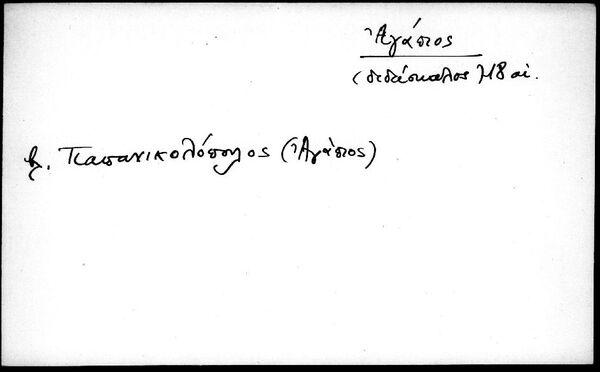 Ἀγάπιος
(διδάσκαλος) 18 αἰ.
βλ. Παπανικολόπουλος (Ἀγάπιος)